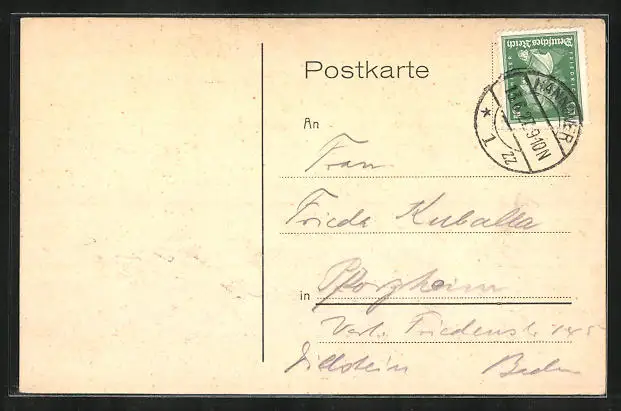 Postkarte
Deutsches Reich
HANNOVER
9-10N
* 1
An
Frau
Frieda Kuballa
in Pforzheim
Verl. Friedenstr. 145
Dillstein Baden